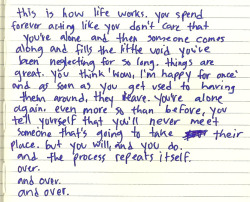 this is how life works. you spend
forever acting like you don't care that
you're alone and then someone comes
along and fills the little void you've
been neglecting for so long. things are
great. you think 'wow, i'm happy for once'
and as soon as you get used to having
them around, they leave. you're alone
again. even more so than before, you
tell yourself that you'll never meet
someone that's going to take their
place. but you will, and you do.
and the process repeats itself.
over.
and over.
and over.